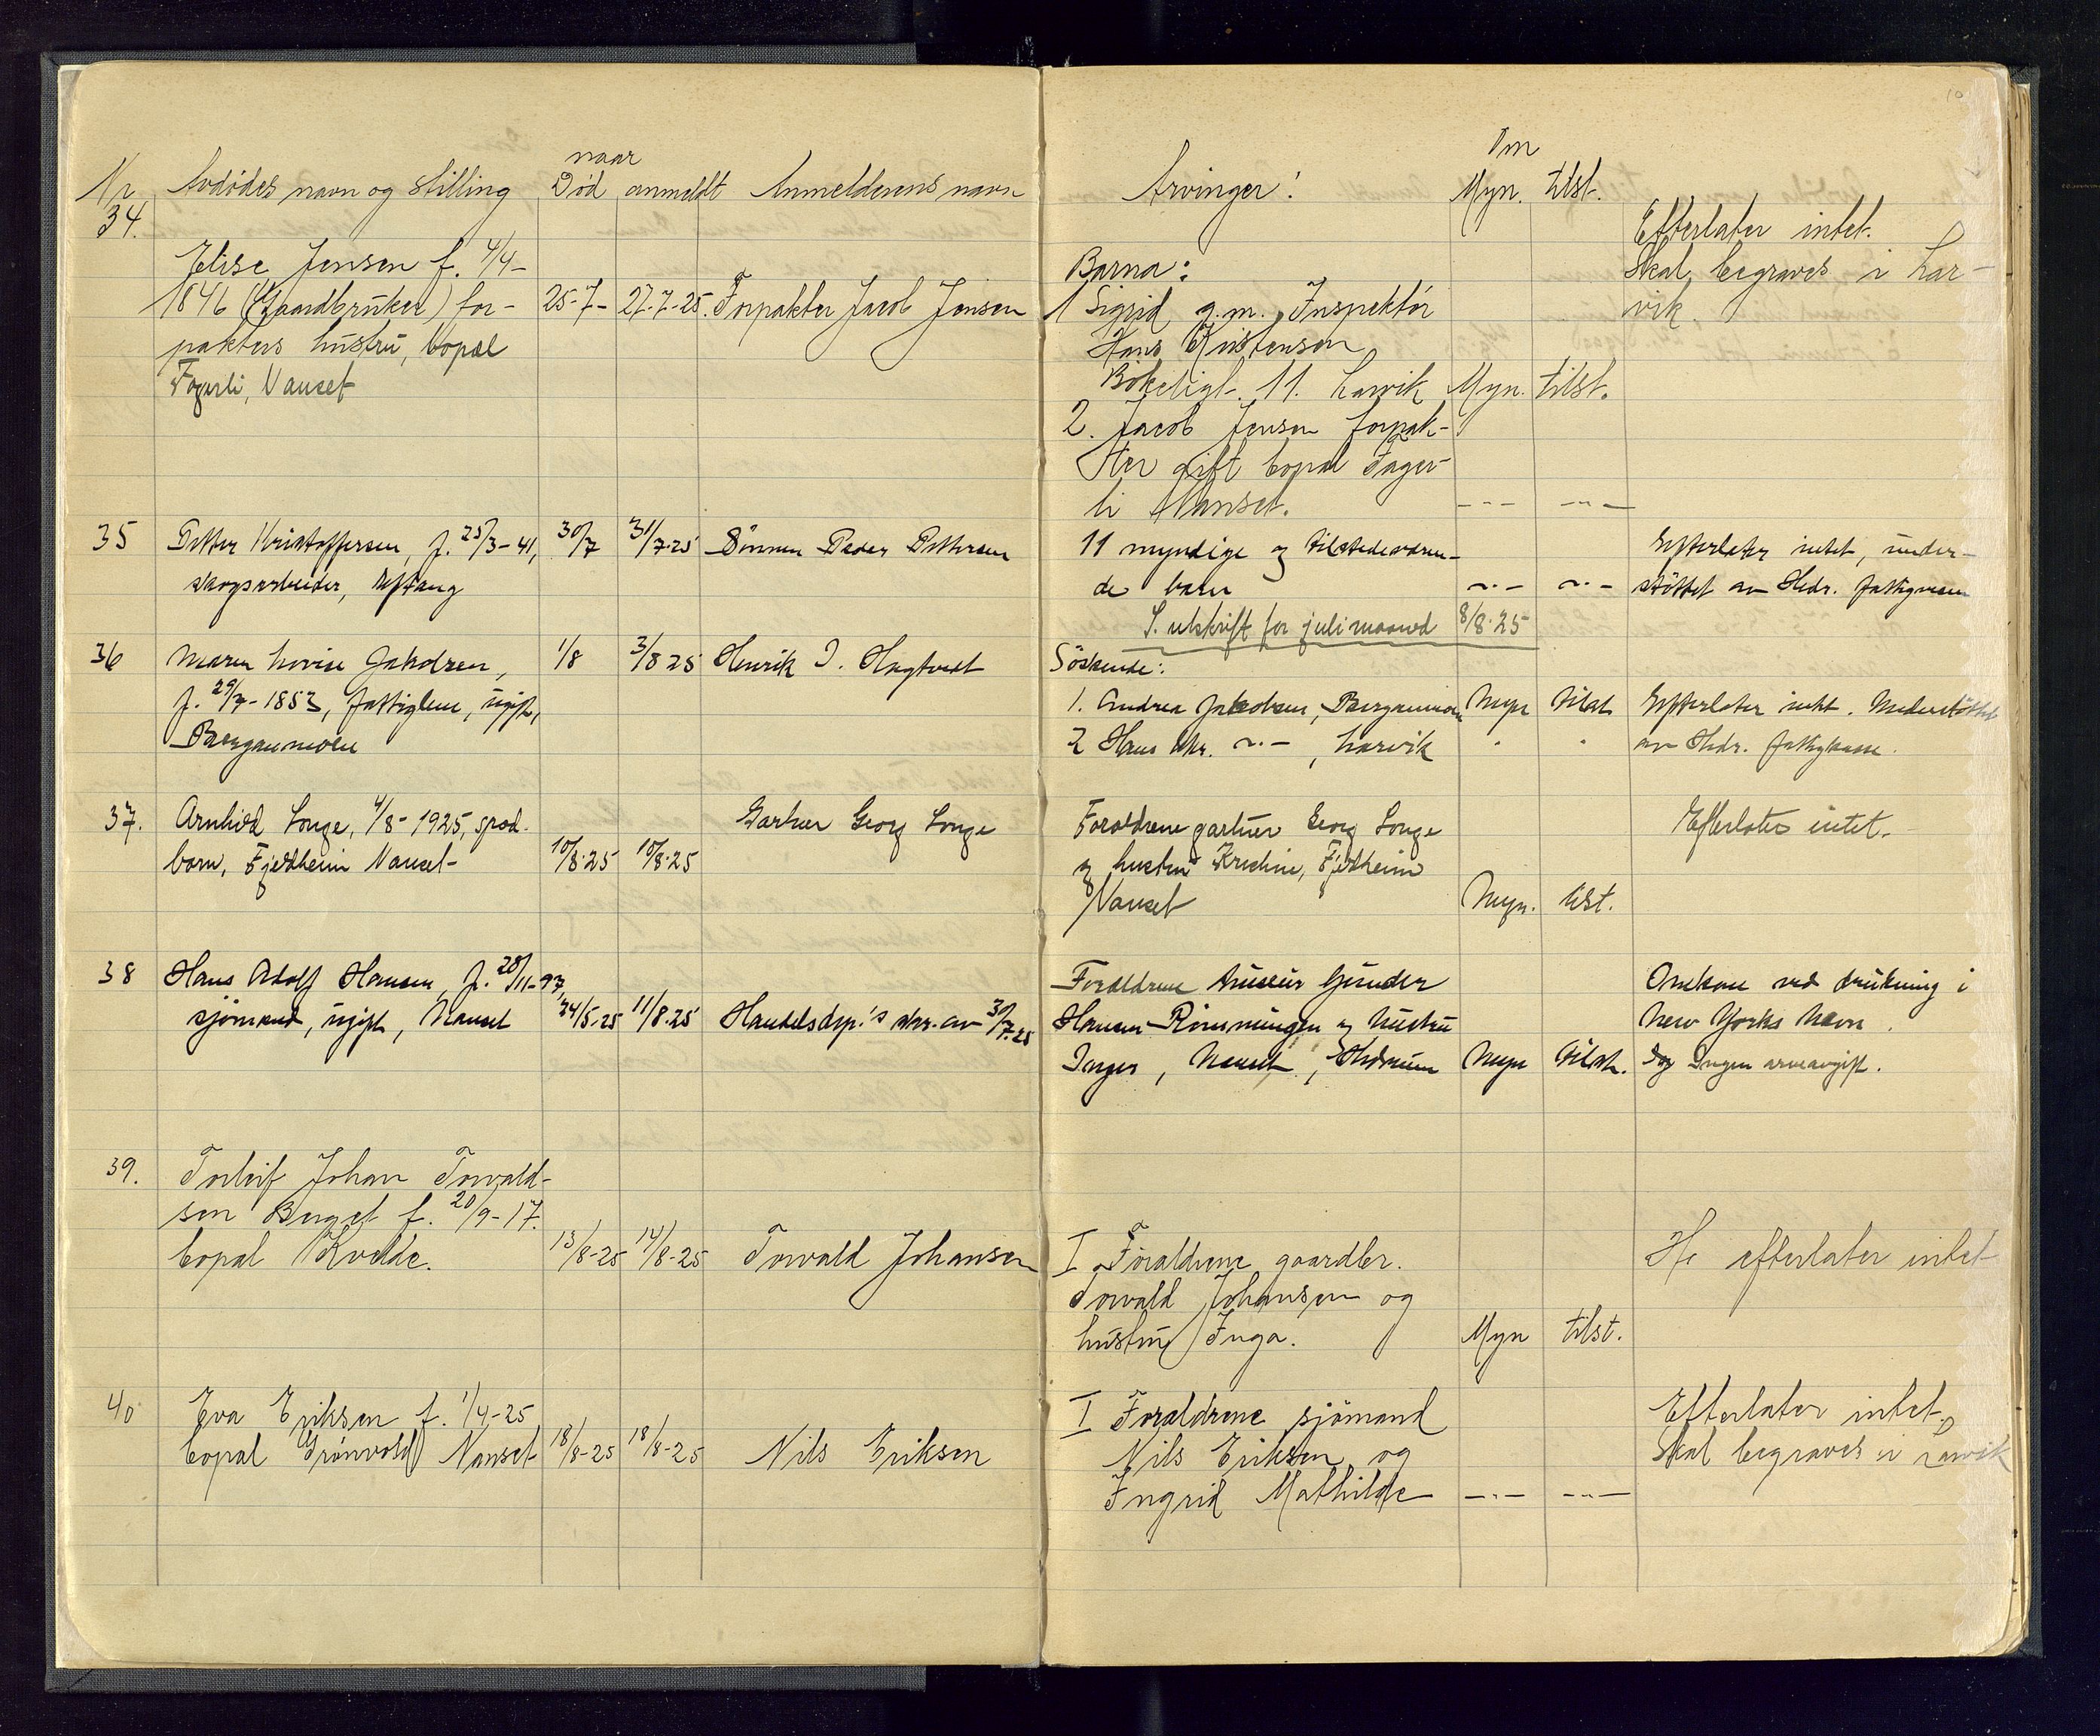 10
naar
Om
Nr. Avdødes navn og stilling Død anmeldt Anmelderens navn Arvinger: Myn. tilst.
34.
Elise Jensen f. 4/4-
1846 (Gaardbruker) for-
pakters hustru, bopæl
Fagerli, Nanset
25-7- 27-7-25. Forpakter Jacob Jensen
Barna:
1 Sigrid g.m. Inspektør
Hans Kristensen
Bøkeligt. 11. Larvik Myn. tilst.
2. Jacob Jensen forpak-
ter gift bopæl Fager-
li Nanset. -"- -"-
Efterlater intet.
Skal begraves i Lar-
vik.
35 Petter Kristoffersen, f. 25/3-41,
skogsarbeider, Østang
30/7 31/7-25 Sønnen Peder Pettersen
11 myndige og tilstedeværen-
de barn -"- -"-
Efterlater intet, under-
støttet av Hedr. fattigvæsen
S. utskrift for juli maaned 8/8-25
36 Maren Lovise Jakobsen,
f. 29/7-1853, fattiglem, ugift,
Bergeunmoen
1/8 3/8 25 Henrik I. Hagtvedt
Søskende:
1. Andrea Jakobsen, Myn tilst.
2 Hans Chr. -"-, Larvik " "
Efterlater intet. Understøttet
av Hedr. fattigkasse.
37. Arnhild Longe, 4/8-1925, spæd-
barn, Fjeldheim Nanset-
10/8-25 10/8-25
Gartner Georg Longe
Forældrene gartner Georg Longe
og hustru Kristine, Fjeldheim
Nanset Myn. tilst.
Efterlater intet.
38 Hans Adolf Hansen, f. 28/11-97,
sjømand, ugift, Nanset
24/5-25 11/8-25 Handelsdep.'s skr. av 30/7-25
Forældrene Gunder
Hansen Rønningen og hustru
Inger, Nanset, Hedrum Myn tilst.
Omkom ved drukning i
New Yorks havn.
Ingen arveavgift.
39. Torleif Johan Torvald-
sen Berget f. 20/9-17.
bopæl Kvelde.
13/8-25 14/8-25 Torvald Johansen
I Forældrene gaardbr.
Torvald Johansen og
hustru Inga. Myn tilst.
efterlater intet
40 Eva Eriksen f. 1/4-25
bopæl Grønvold Nanset
18/8-25 18/8-25 Nils Eriksen
I Forældrene sjømand
Nils Eriksen og
Ingrid Mathilde -"- -"-
Efterlater intet.
Skal begraves i Larvik